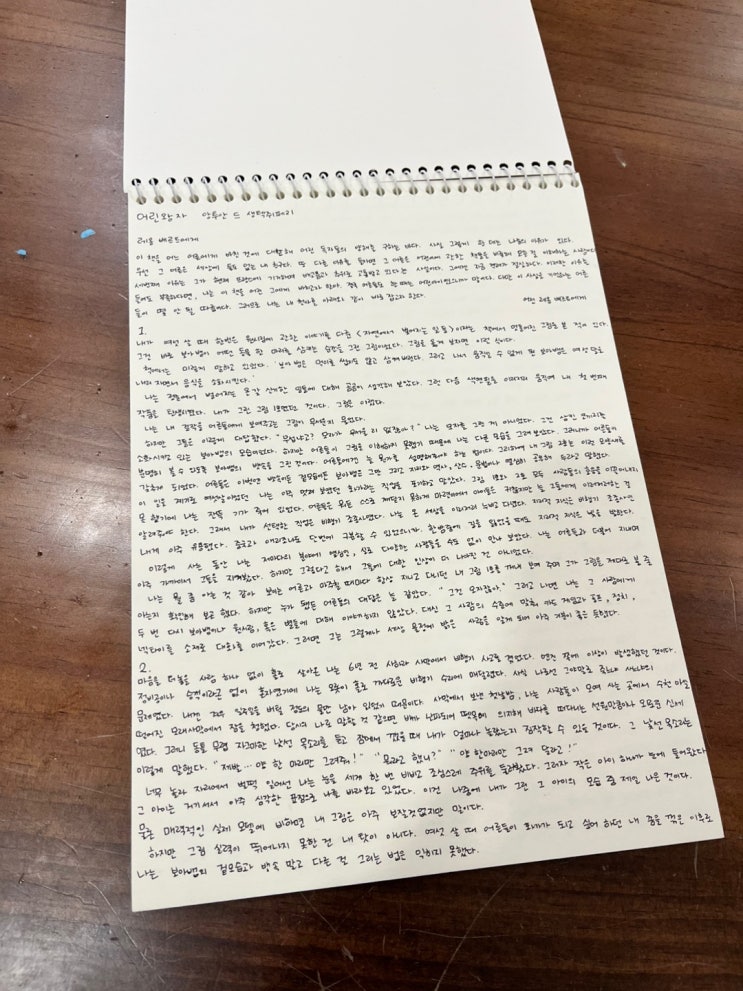 어린왕자 앙투안 드 생텍쥐페리
레옹 베르트에게
이 책을 어느 어른에게 바친 것에 대해 어린 독자들의 양해를 구하는 바다. 사실 그렇게 한 데는 나름의 이유가 있다.
우선 그 어른은 세상에 둘도 없는 내 친구다. 또 다른 이유를 들자면 그 어른은 어린이에 관한 책들은 비롯해 모든 걸 이해하는 사람이다.
세번째 이유는 그가 현재 프랑스에 기거하며 배고픔과 추위로 고통받고 있다는 사실이다. 그에겐 지금 현재가 절실하다. 이러한 이유들
들어도 부족하다면, 나는 이 책을 어린 그에게 바치고자 한다. 결국 어른들도 한 때는 어린아이였으니까 말이다. 다만 이 사실을 기억하는 어른
들이 몇 안 될 따름이다. 그러므로 나는 내 헌사를 아래와 같이 바로 잡고자 한다.
어린 레옹 베르트에게
1.
내가 여섯 살 때 한번은 원시림에 관한 이야기를 다룬 <자연에서 벌어지는 일들>이라는 책에서 멋들어진 그림을 본 적이 있다.
그건 바로 보아뱀이 어떤 동물 한 마리를 삼키는 순간을 그린 그림이었다. 그림을 옮겨 보자면 이런 식이다.
책에서는 이렇게 말하고 있었다. '보아 뱀은 먹이를 씹지도 않고 삼켜버린다. 그리고 내내 움직일 수 없게 된 보아뱀은 여섯 달로
내리 자면서 음식을 소화시킨다.'
나는 정글에서 벌어지는 온갖 신기한 일들에 대해 곰곰이 생각해 보았다. 그런 다음 색연필로 이리저리 움직여 내 첫 번째
작품을 탄생시켰다. 내가 그린 그림 1호였던 것이다. 그림은 이렇다.
나는 내 걸작을 어른들에게 보여주고는 그림이 무섭지 물었다.
하지만 그들은 이렇게 대답했다. "무섭냐고? 모자가 무서울 리 없잖아?" 나는 모자를 그린 게 아니었다. 그건 삼킨 코끼리를
소화시키고 있는 보아뱀의 모습이었다. 하지만 어른들이 그림을 이해하지 못했기 때문에 나는 다른 모습을 그려 보았다. 그러니까 어른들이
분명히 볼 수 있도록 보아뱀의 뱃속을 그린 것이다. 어른들에게는 늘 뭔가를 설명해줘야 하는 법이다. 그리하여 내 그림 2호는 이런 모양새를
갖추게 되었다. 어른들은 이번엔 뱃속이든 겉모습이든 보아뱀은 그만 그리고 지리와 역사, 산수, 문법이나 열심히 공부해 두라고 말했다.
이 일을 계기로 여섯살이었던 나는 이런 멋져 보였던 화가라는 직업을 포기하고 말았다. 그림 1호와 2호 모두 사람들의 호응을 이끌어내지
못 했기에 나는 잔뜩 기가 죽어 있었다. 어른들은 뭐든 스스로 깨닫지 못하기 마련이며 아이들은 귀찮지만 늘 그들에게 이래저래 하는 걸
알려줘야 한다. 그래서 내가 선택한 직업은 비행기 조종사였다. 나는 온 세상을 이리저리 누비고 다녔다. 지리적 지식은 비행기 조종사인
내게 아주 유용했다. 중국과 애리조나도 단번에 구분할 수 있었으니까. 한밤중에 길을 잃었을 때도 지리적 지식은 빛을 발한다.
이렇게 사는 동안 나는 저마다의 분야에 열심인, 실로 다양한 사람들을 수도 없이 만나 보았다. 나는 어른들과 더불어 지내며
아주 가까이서 그들을 지켜봤다. 하지만 그렇다고 해서 그들에 대한 인상이 더 나아진 건 아니었다.
나는 뭘 좀 아는 것 같아 보이는 어른과 마주칠 때마다 항상 지니고 다니던 내 그림 1호를 꺼내 보여 주며 그가 그림을 제대로 볼 줄
아는지 확인해 보곤 했다. 하지만 누가 됐든 어른들의 대답은 늘 같았다. "그건 모자잖아." 그러고 나면 나는 그 사람에게
두 번 다시 보아뱀이나 원시림, 혹은 별들에 대해 이야기하지 않았다. 대신 그 사람의 수준에 맞춰 카드 게임과 골프, 정치,
넥타이를 소재로 대화를 이어갔다. 그러면 그는 그렇게나 세상 물정에 밝은 사람을 알게 되어 아주 기분이 좋은 듯했다.
2.
마음을 터놓을 사람 하나 없이 홀로 살아온 나는 6년 전 사하라 사막에서 비행기 사고를 겪었다. 엔진 쪽에 이상이 발생했던 것이다.
정비공이나 승객이라곤 없이 혼자였기에 나는 묵묵히 홀로 까다로운 비행기 수리에 매달렸다. 사실 나로선 그야말로 죽느냐 사느냐의
문제였다. 내겐 겨우 일주일을 버틸 정도의 물만 남아 있었기 때문이다. 사막에서 보낸 첫날밤, 나는 사람들이 모여 사는 곳에서 수천 마일
떨어진 모래사막에서 잠을 청했다. 당시의 나로 말할 것 같으면 배가 난파되어 뗏목에 의지해 바다를 떠다니는 선원만큼이나 외로운 신세
였다. 그러니 동틀 무렵 자그마한 낯선 목소리를 듣고 잠에서 깼을 때 내가 얼마나 놀랐는지 짐작할 수 있을 것이다. 그 낯선 목소리는
이렇게 말했다. "제발... 양 한 마리만 그려줘!" "뭐라고 했니?" "양 한마리만 그려 달라고!"
너무 놀라 자리에서 벌떡 일어선 나는 눈을 세게 한 번 비비고 조심스레 주위를 둘러봤다. 그러자 작은 아이 하나가 눈에 들어왔다.
그 아이는 저기서서 아주 심각한 표정으로 나를 바라보고 있었다. 이건 나중에 내가 그린 그 아이의 모습 중 제일 나은 것이다.
물론 매력적인 실제 모델에 비하면 내 그림은 아주 보잘것없지만 말이다.
하지만 그림 실력이 뛰어나지 못한 건 내 탓이 아니다. 여섯 살 때 어른들이 화가가 되고 싶어 하던 내 꿈을 꺾은 이후로
나는 보아뱀의 겉모습과 뱃속 말고 다른 걸 그리는 법은 익히지 못했다.